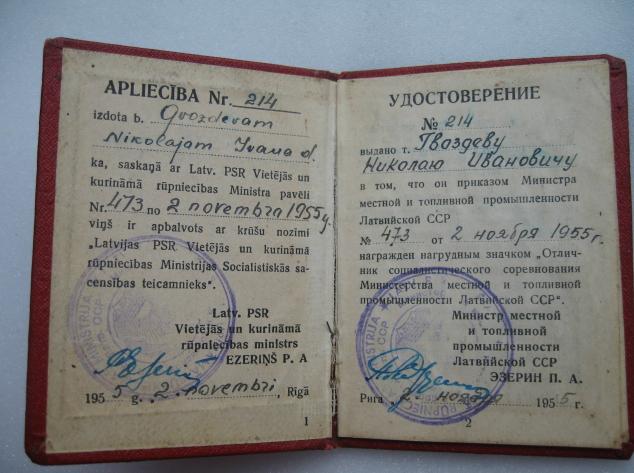 APLIECĪBA Nr. 214
izdota b. Gvozdevam
Nikolajam Ivana d.
ka, saskaņā ar Latv. PSR Vietējās un
kurināmā rūpniecības Ministra pavēli
Nr. 473 no 2 novembra 1955 g.
viņš ir apbalvots ar krūšu nozīmi
„Latvijas PSR Vietējās un kurināmā
rūpniecības Ministrijas Socialistiskās sa-
censības teicamnieks“.
Latv. PSR
Vietējās un kurināmā
rūpniecības ministrs
EZERIŅŠ P. A
1955 g. 2. novembrī, Rīgā
1
УДОСТОВЕРЕНИЕ
№ 214
выдано т. Гваздеву
Николаю Ивановичу
в том, что он приказом Министра
местной и топливной промышленности
Латвийской ССР
№ 473 от 2 ноября 1955 г.
награжден нагрудным значком „Отлич-
ник социалистического соревнования
Министерства местной и топливной
промышленности Латвийской ССР“.
Министр местной
и топливной
промышленности
Латвийской ССР
ЭЗЕРИН П. А.
Рига „2“ ноября 1955 г.
2